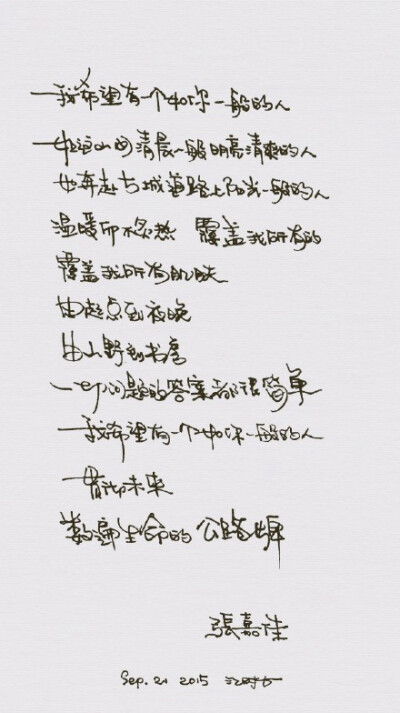 我希望有一个如你一般的人
如这山间清晨一般明亮清爽的人
如奔赴古城道路上阳光一般的人
温暖而不炙热 覆盖我所有的
覆盖我所有肌肤
由起点到夜晚
由山野到书房
一切问题的答案都很简单
我希望有一个如你一般的人
贯彻未来
数遍生命的公路牌
張嘉佳
Sep. 21 2015